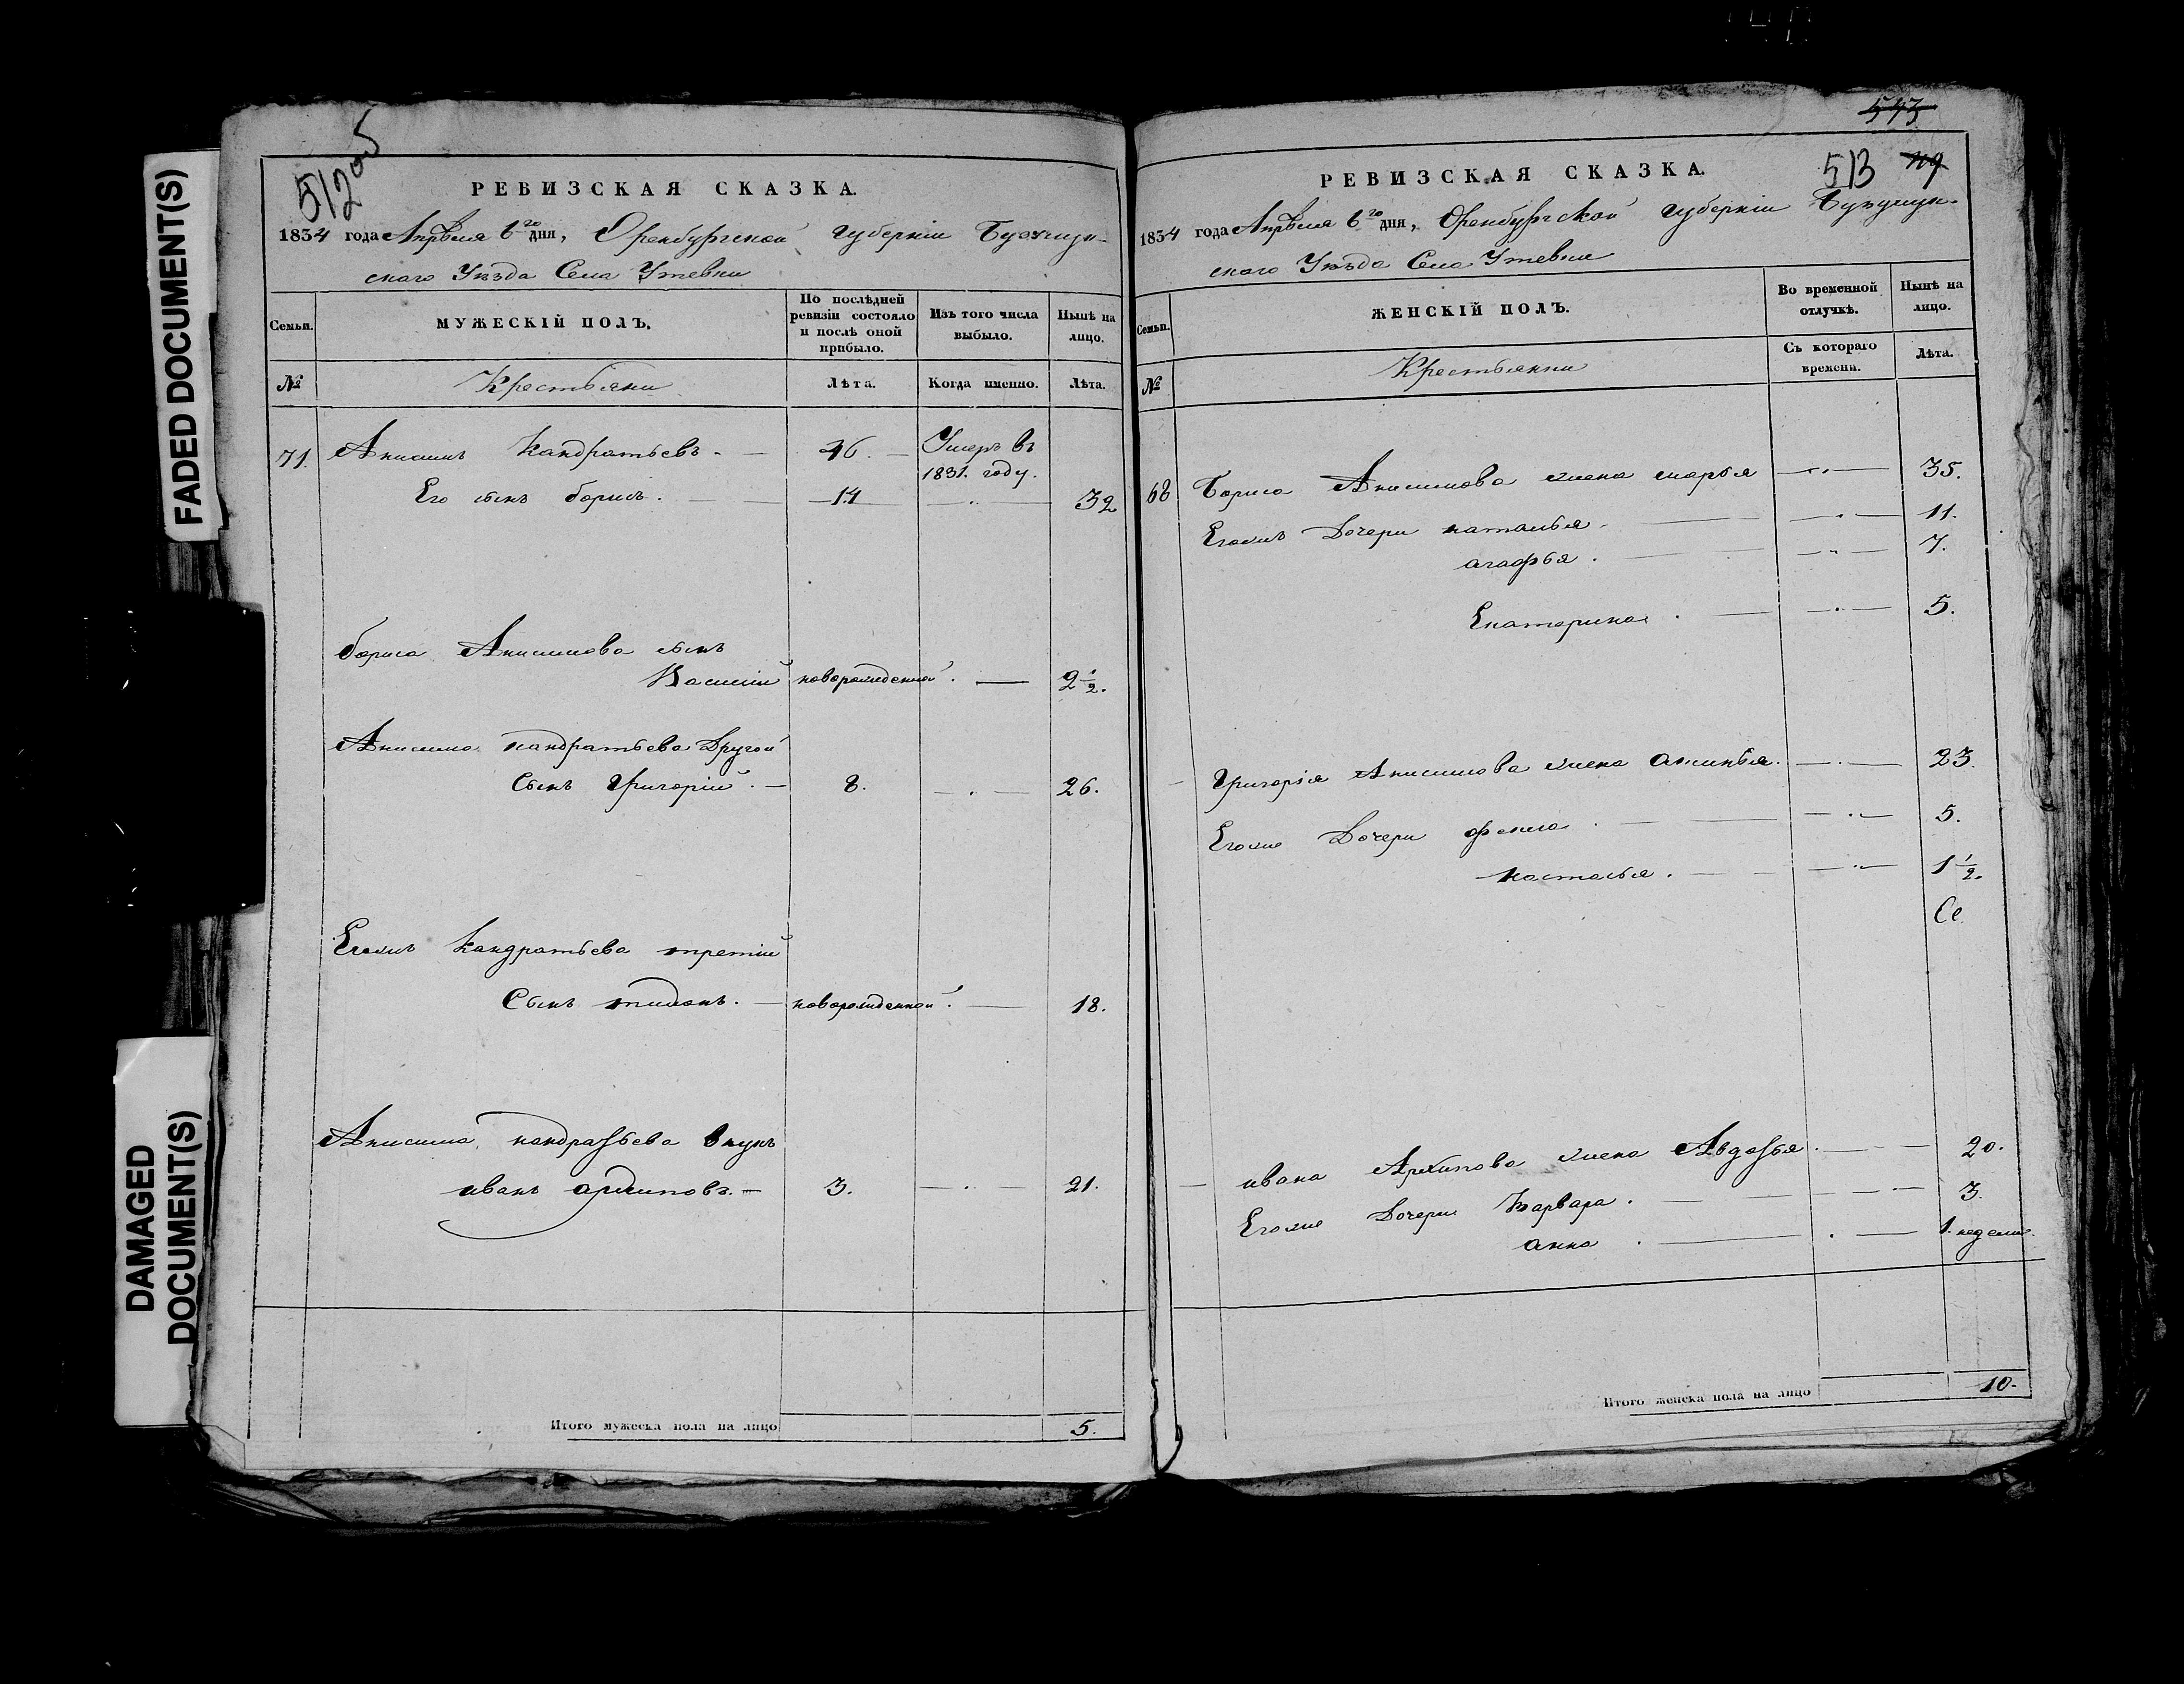 FADED DOCUMENT(S)
DAMAGED
DOCUMENT(S)
512 об
РЕВИЗСКАЯ СКАЗКА.
1834 года Апреля 6го дня, Оренбургской губерніи Бузулук-
скаго Уѣзда Села Утевки
Семьи.
МУЖЕСКІЙ ПОЛЪ.
По послѣдней
ревизіи состояло
и послѣ оной
прибыло.
Изъ того числа
выбыло.
Нынѣ на
лицо.
№
Крестьяни
Лѣта.
Когда именно.
Лѣта.
71. Анисимъ Кандратьевъ. — 46. — Умеръ въ
1831. году.
Его сынъ борисъ. — 14 — 32
бориса Анисимова сынъ
Василій новорожденной. — 2 1/2.
Анисима кандратьева Другой
Сынъ Григорій. — 8. — 26.
Егожъ Кандратьева третій
Сынъ тихонъ. — новорожденной. — 18.
Анисима кандратьева внукъ
иванъ архиповъ. — 3. — 21.
Итого мужеска пола на лицо 5.
543
513
119
РЕВИЗСКАЯ СКАЗКА.
1834 года Апреля 6го дня, Оренбургской губерніи Бузулук-
скаго Уѣзда Села Утевки
Семьи.
ЖЕНСКІЙ ПОЛЪ.
Во временной
отлучкѣ.
Нынѣ на
лицо.
№
Крестьянки
Съ котораго
времени.
Лѣта.
68 Бориса Анисимова жена марья — 35.
Егожъ Дочери наталья — 11.
агафья. — 7.
Екатерина. — 5.
Григорія Анисимова жена аксинья. — 23.
Егоже Дочери фекла — 5.
настасья. — 1 1/2.
ивана Архипова жена Авдотья. — 20.
Егоже Дочери Варвара. — 3.
анна. — 1. недели.
Итого женска пола на лицо 10.